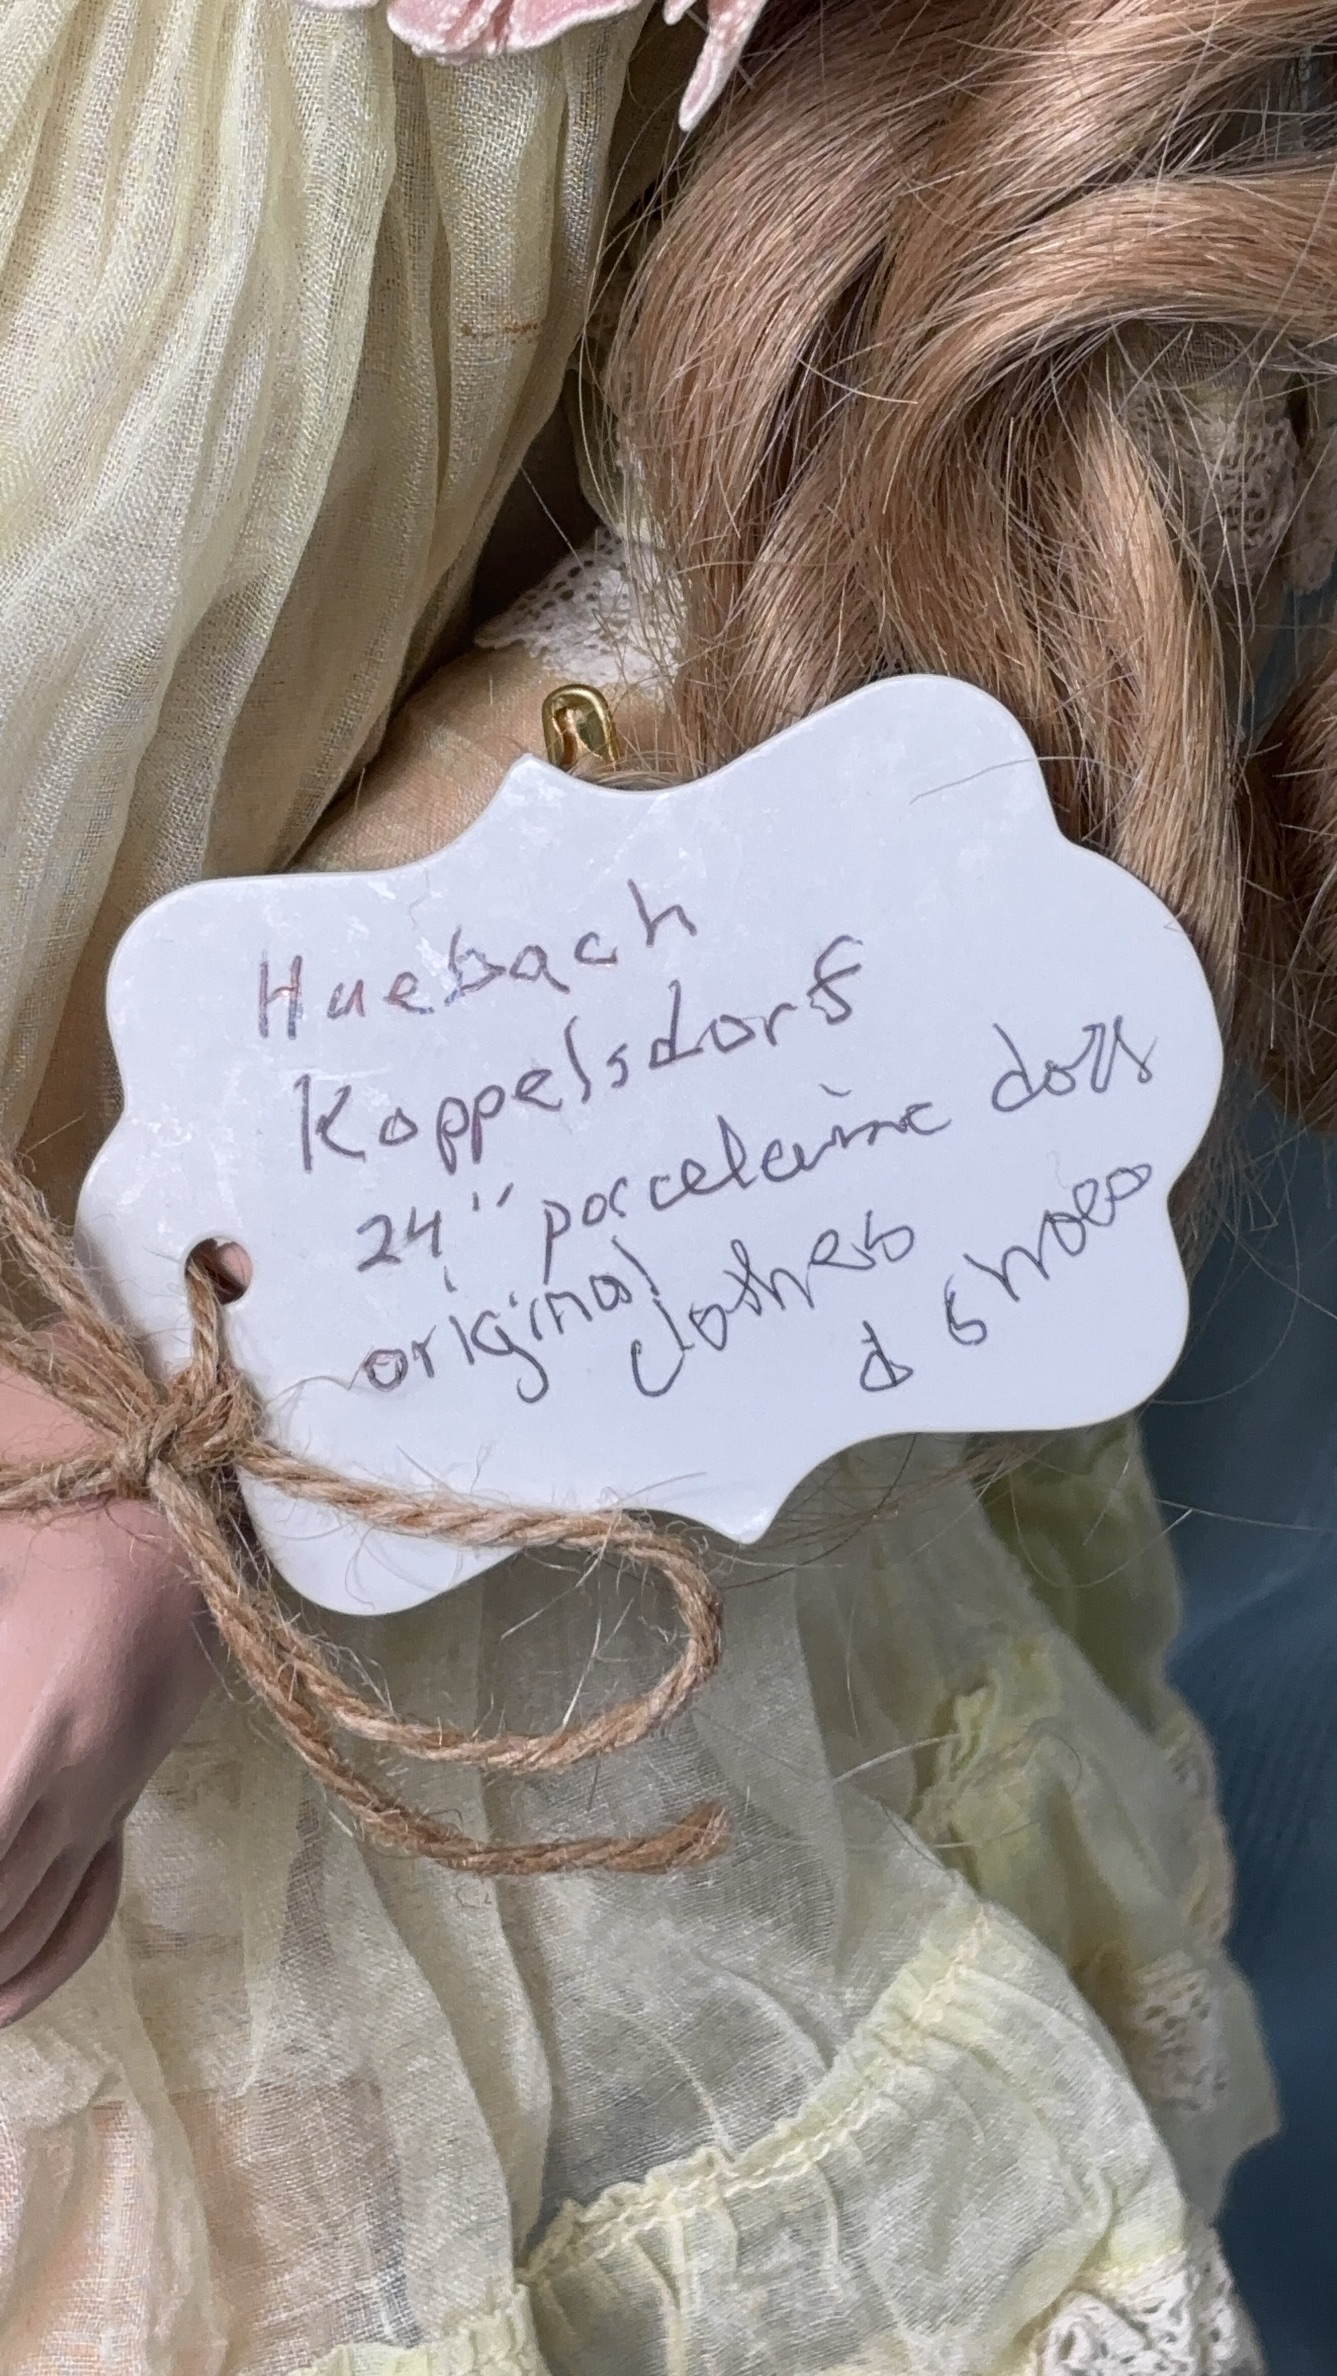 Huebach
Koppelsdorf
24" porcelaine doll
original clothes
& shoes